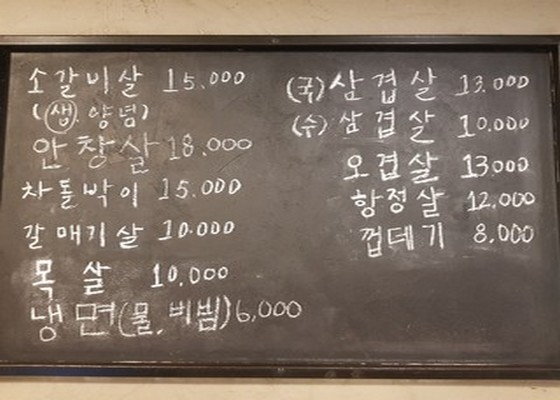 소갈비살 15.000
(생, 양념)
안창살 18.000
차돌박이 15.000
갈매기살 10.000
목살 10,000
냉면(물, 비빔) 6,000
(국) 삼겹살 13.000
(수) 삼겹살 10.000
오겹살 13000
항정살 12,000
껍데기 8,000